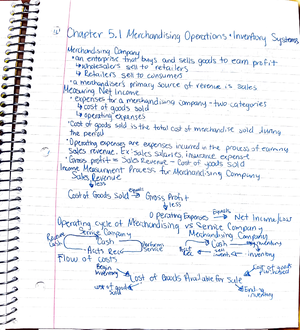 Chapter 5.1 Merchandising Operations + Inventory Systems
Merchandising Company
• an enterprise that buys and sells goods to earn profit
↳ wholesalers sell to retailers
↳ Retailers sell to consumers
• a merchandiser's primary source of revenue is sales
Measuring Net Income
• expenses for a merchandising company - two categories
↳ cost of goods sold
↳ operating expenses
• Cost of goods sold is the total cost of merchandise sold during
the period
• Operating expenses are expenses incurred in the process of earning
sales revenue. Ex: sales salaries, insurance expense
• Gross profit = Sales Revenue - Cost of goods sold
Income Measurement Process for Merchandising Company
Sales Revenue
↓ less
Cost of Goods Sold equals → Gross Profit
↓ less
Operating Expenses Equals → Net Income/Loss
Operating Cycle of Merchandising vs Service Company
Service Company Merchandising Company
Receive Cash Cash Perform Service Cash Buy inventory
Accts Rec Rec sell invent. inventory
Flow of costs
Begin inventory Cost of goods purchased
Cost of Goods Available for Sale
cost of goods sold Ending inventory